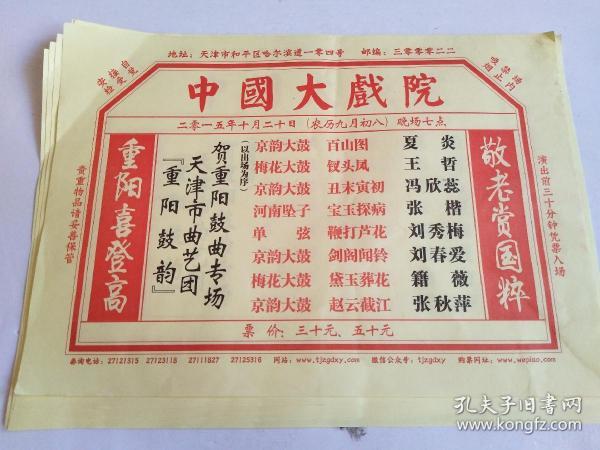 地址：天津市和平区哈尔滨道一零四号　邮编：三零零零二二
安接自
检受觉
场内
禁止
吸烟
中國大戲院
二零一五年十月二十日（农历九月初八）晚场七点
重阳喜登高
敬老赏国粹
贺重阳鼓曲专场
天津市曲艺团
『重阳鼓韵』
（以出场为序）
京韵大鼓　百山图　夏炎
梅花大鼓　钗头凤　王哲
京韵大鼓　丑末寅初　冯欣蕊
河南坠子　宝玉探病　张楷
单弦　鞭打芦花　刘秀梅
京韵大鼓　剑阁闻铃　刘春爱
梅花大鼓　黛玉葬花　籍薇
京韵大鼓　赵云截江　张秋萍
票价：三十元、五十元
贵重物品请妥善保管
演出前三十分钟凭票入场
咨询电话：27121315　27123118　27111827　27125316　网站：www.tjzgdxy.com　微信公众号：tjzgdxy　购票网址：www.wepiao.com
孔夫子旧书网
www.kongfz.com